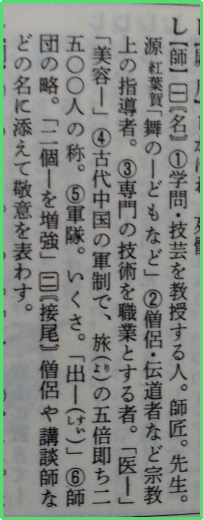 し【師】㊀《名》①学問・技芸を教授する人。師匠。先生。
源紅葉賀「舞の―どもなど」②僧侶・伝道者など宗教
上の指導者。③専門の技術を職業とする者。「医―」
「美容―」④古代中国の軍制で、旅(りょ)の五倍即ち二
五〇〇人の称。⑤軍隊。いくさ。「出―(すいし)」⑥師
団の略。「二個―を増強」㊁《接尾》僧侶や講談師な
どの名に添えて敬意を表わす。